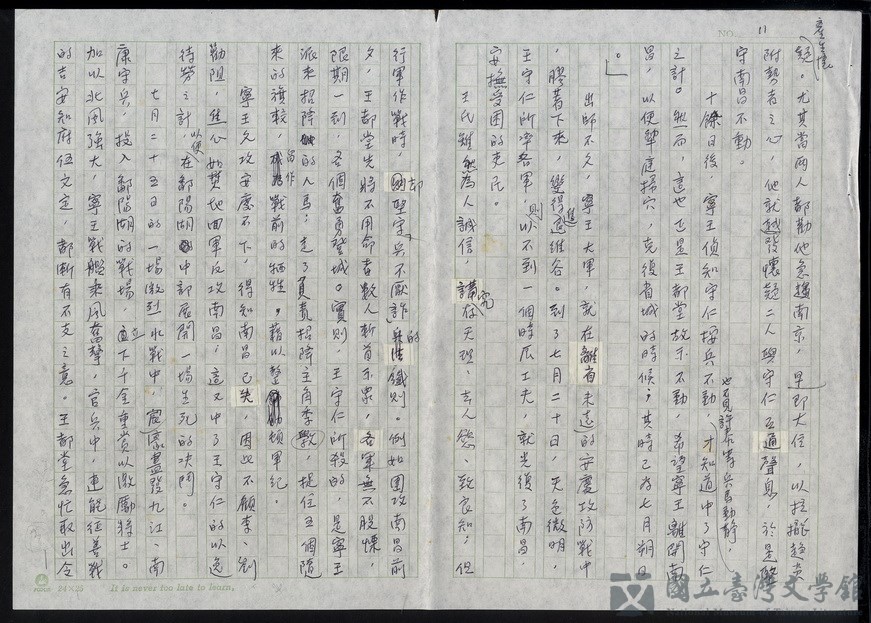 產生懷
NO. 11
疑。尤其當兩人都勸他急趨南京，早即大位，以拉攏趨炎
附勢者之心，他就越發懷疑二人與守仁互通聲息，於是堅
守南昌不動。
十餘日後，寧王偵知守仁按兵不動，才知道中了守仁
也不見許泰等兵馬動靜，
之計。然而，這也正是王都堂故示不動，希望寧王離開南
昌，以便犂庭掃穴，克復省城的時候；其時已為七月朔日
。
出師不久，寧王大軍，就在離省未遠的安慶攻防戰中
，膠著下來，變得進退維谷。到了七月二十日，天色微明，
王守仁所率各軍，則以不到一個時辰工夫，就光復了南昌，
安撫受困的吏民。
王氏雖然為人誠信，講究存天理、去人慾、致良知；但
行軍作戰時，卻堅守兵不厭詐的鐵則。例如圍攻南昌前
夕，王都堂先將不用命者數人斬首示眾，各軍無不股慄，
限期一到，各個奮勇登城。實則，王守仁所殺的，是寧王
派來招降的人馬；走了負責招降主角季斆，捉住五個隨
來的旗較，當作戰前的犧牲。藉以整頓軍紀。
寧王久攻安慶不下，得知南昌已失，因此不顧李、劉
勸阻，焦心如焚地回軍反攻南昌；這又中了王守仁的以逸
待勞之計，以便在鄱陽湖中部展開一場生死的決鬥。
七月二十五日的一場激烈水戰中，宸濠盡發九江、南
康守兵，投入鄱陽湖的戰場，並立下千金重賞以激勵將士。
加以北風強大，寧王戰艦乘風奮擊，官兵中，連能征善戰
的吉安知府伍文定，都漸有不克之意。王都堂急忙取出令
24×25 It is never too late to learn.
國立臺灣文學館